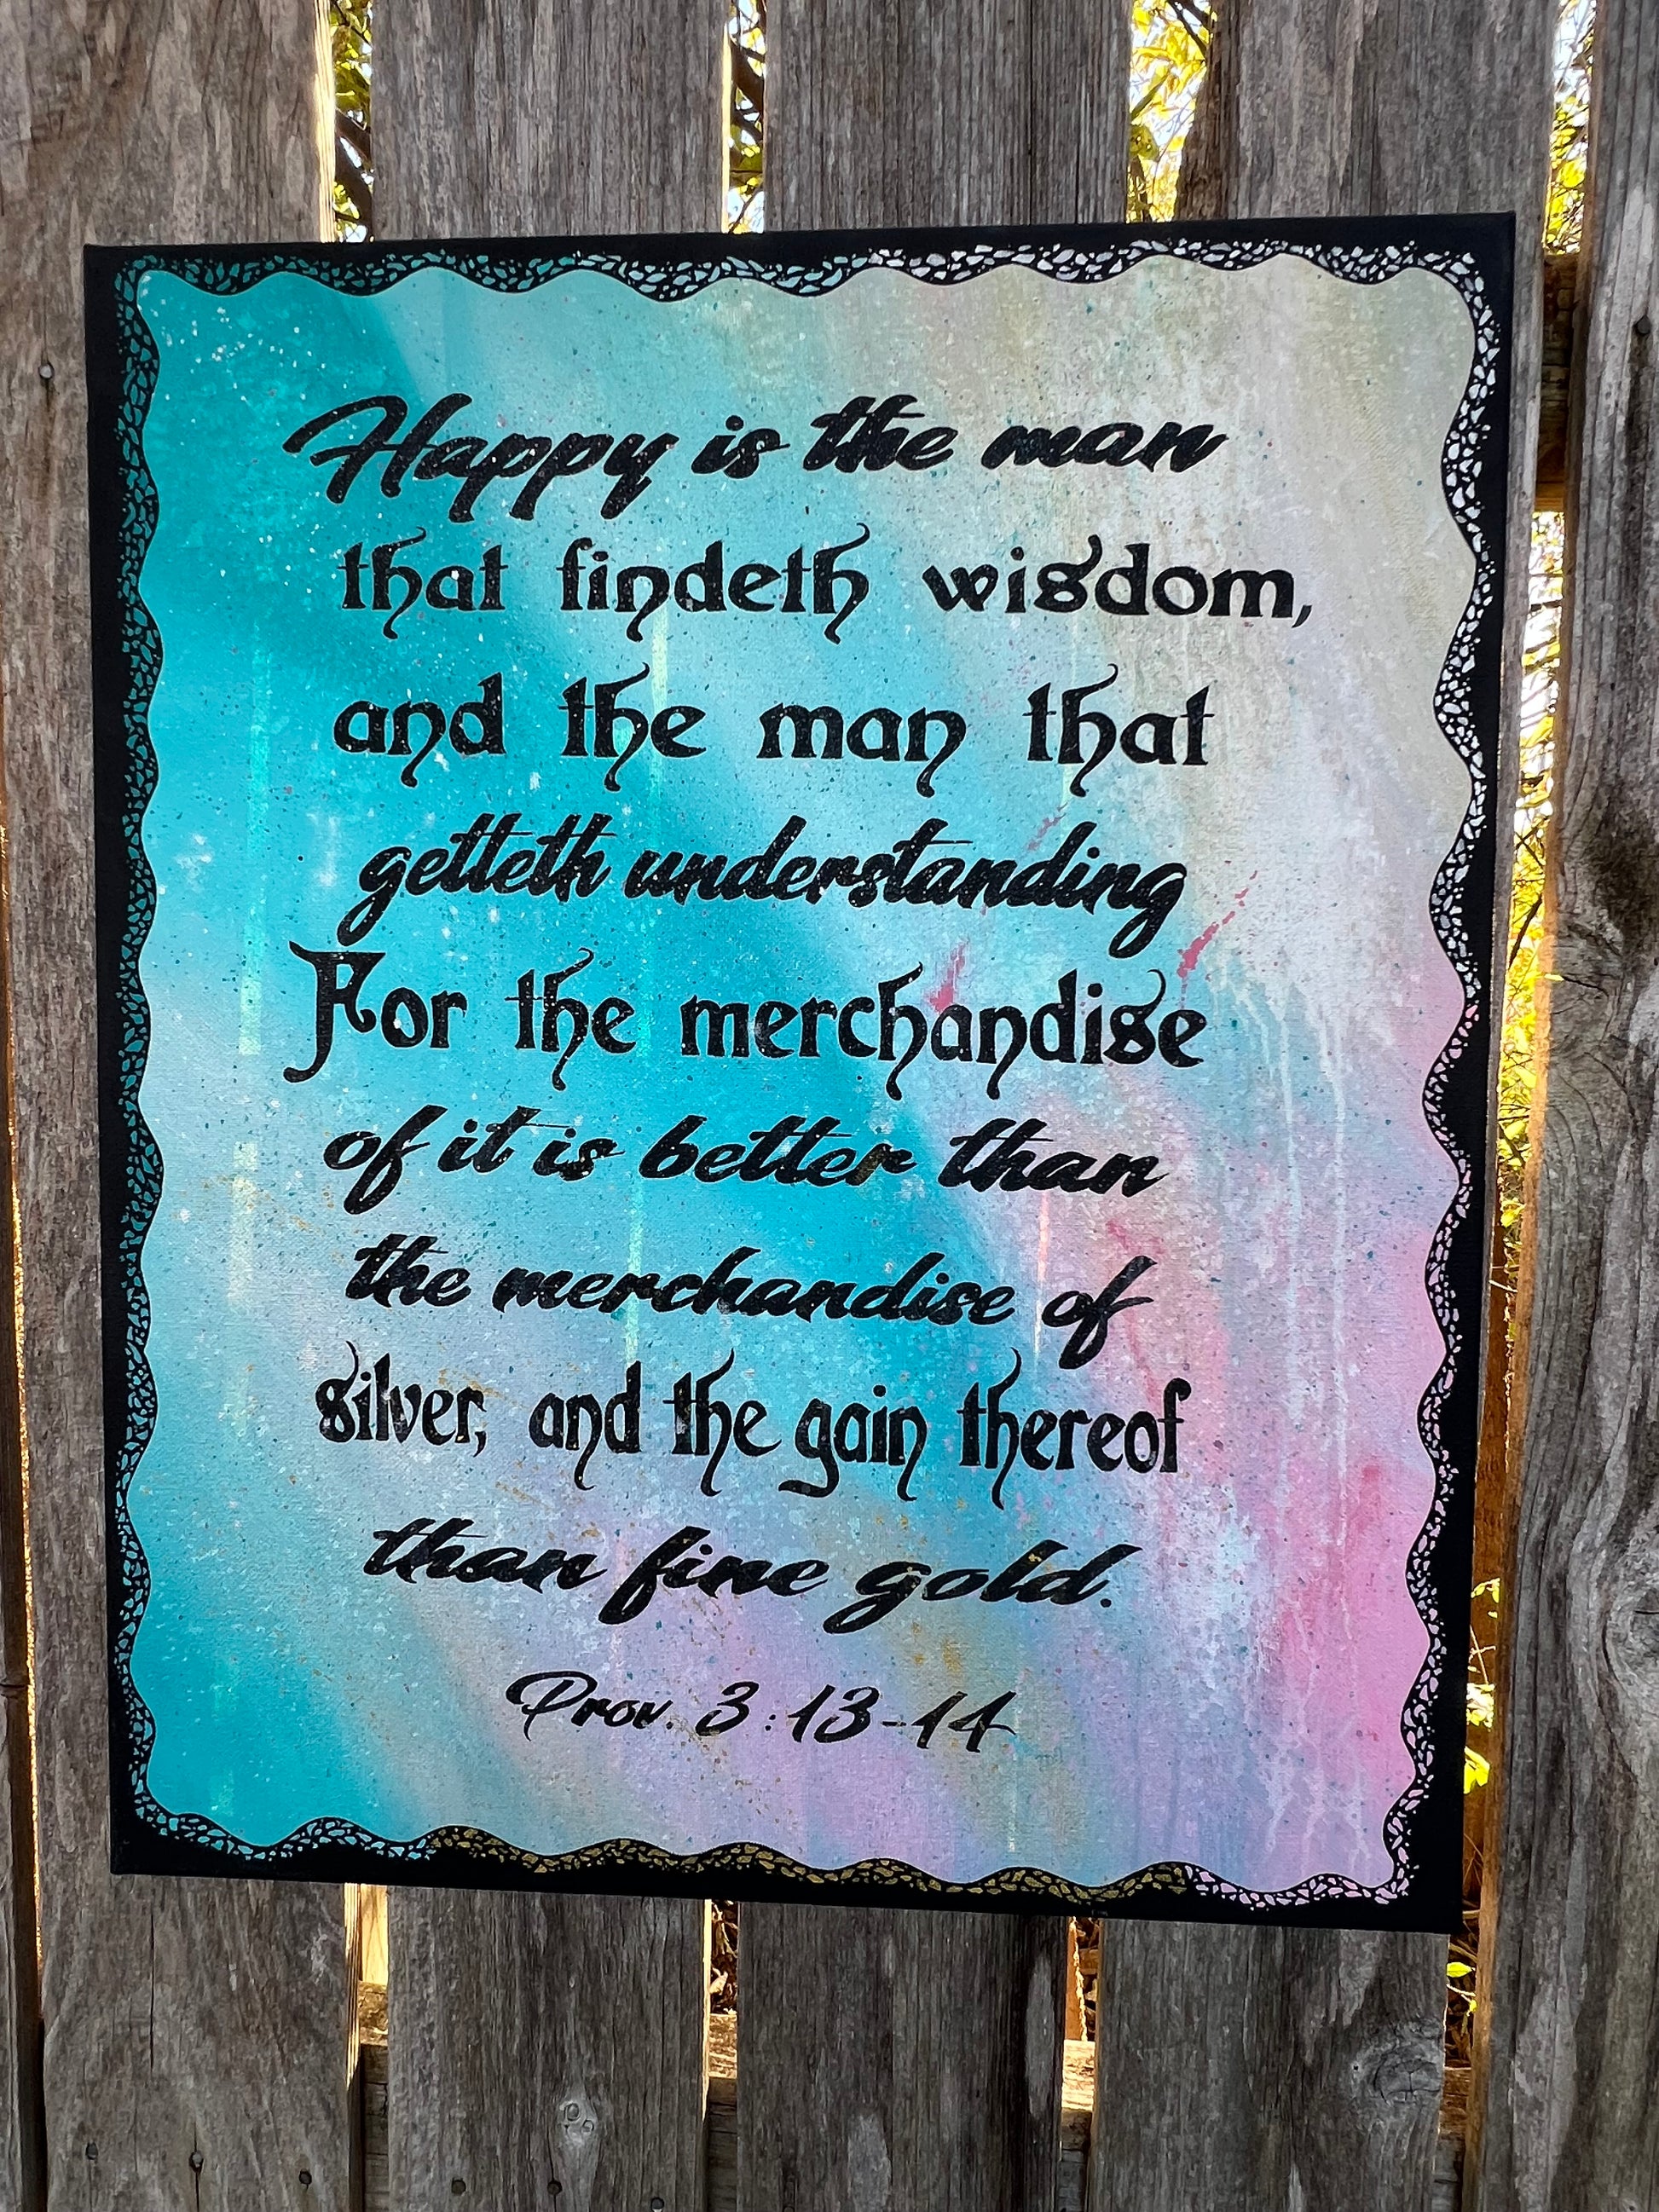 Happy is the man
that findeth wisdom,
and the man that
getteth understanding
For the merchandise
of it is better than
the merchandise of
silver, and the gain thereof
than fine gold.
Prov. 3:13-14